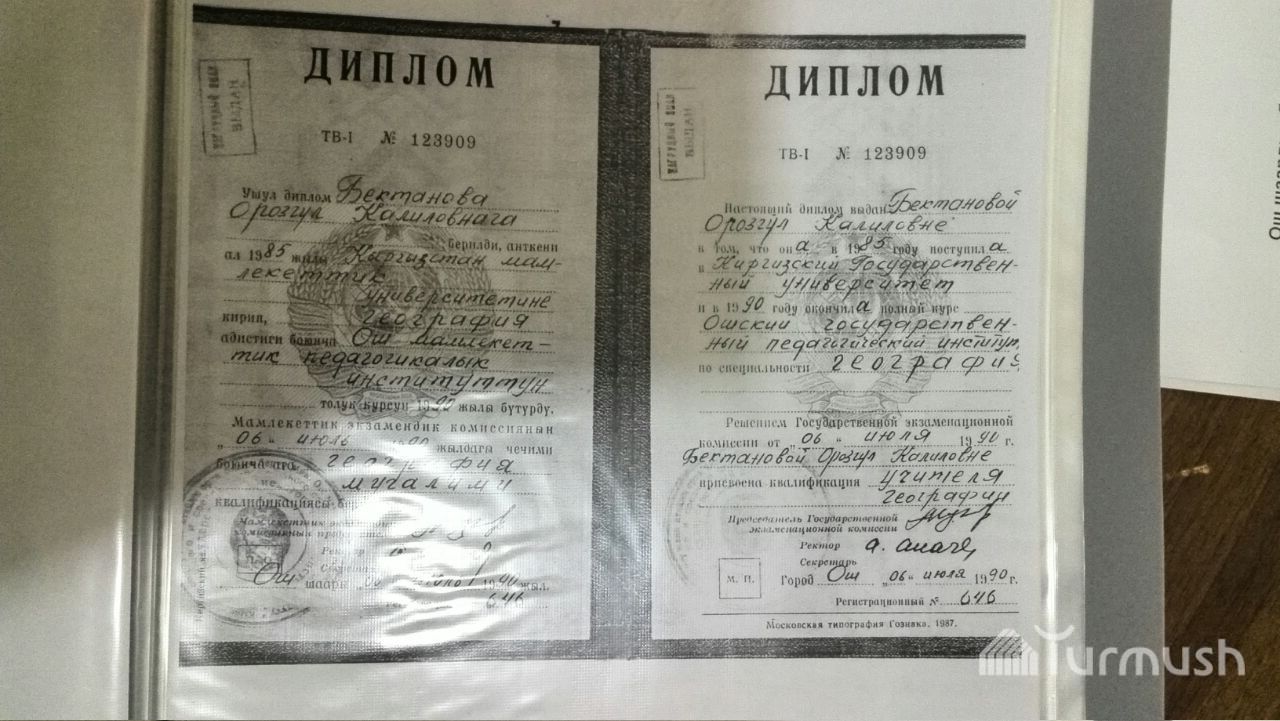 ДИПЛОМ
НАГРУДНЫЙ ЗНАК
ВЫДАН
ТВ-I № 123909
Ушул диплом Бектанова
Орозгул Калиловнага
берилди, анткени
ал 1985 жылы Кыргызстан мам-
лекеттик
университетине
кирип, география
адистиги боюнча Ош мамлекет-
тик педагогикалык
институттун
толук курсун 1990 жылы бүтүрдү.
Мамлекеттик экзамендик комиссиянын
„06" июль 1990 жылдагы чечими
боюнча ага
мугалими
квалификациясы
Ректор
Ош шаары 1990 жыл.
646
ДИПЛОМ
НАГРУДНЫЙ ЗНАК
ВЫДАН
ТВ-I № 123909
Настоящий диплом выдан Бектановой
Орозгул Калиловне
в том, что она в 1985 году поступила
в Киргизский Государствен-
ный университет
и в 1990 году окончила полный курс
Ошский государствен-
ный педагогический институт
по специальности география
Решением Государственной экзаменационной
комиссии от „06" июля 1990 г.
Бектановой Орозгул Калиловне
присвоена квалификация учителя
географии
Председатель Государственной
экзаменационной комиссии
Ректор
Секретарь
М. П.
Город Ош „06" июля 1990 г.
Регистрационный № 646
Московская типография Гознака. 1987.
Turmush